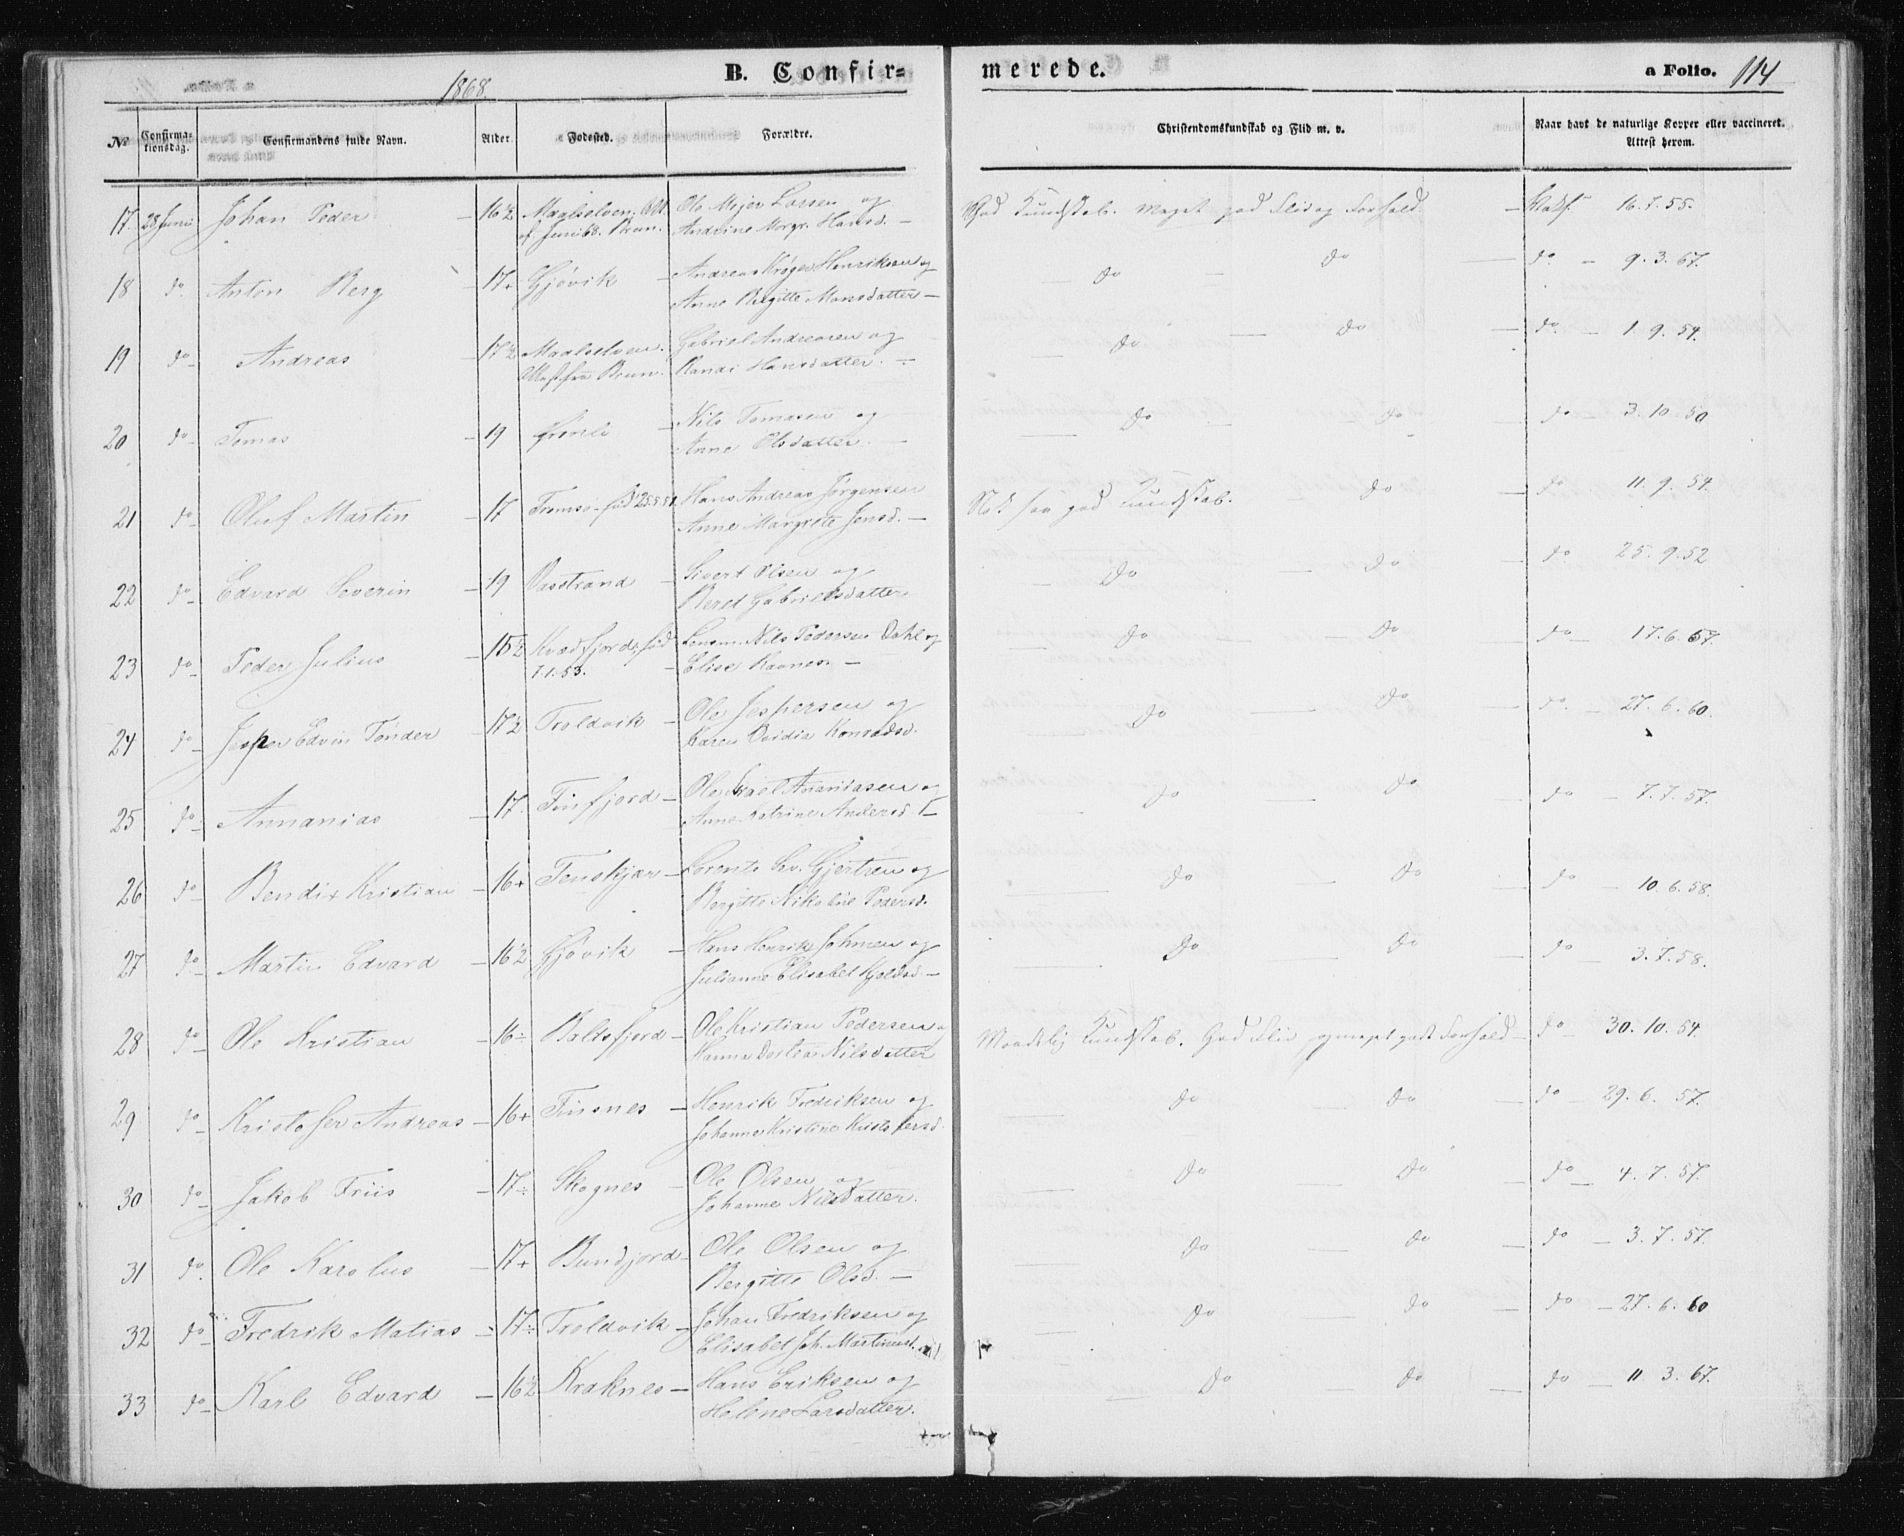 1868
B. Confir=
merede.
a Folio. 114
No
Confirma-
tionsdag.
Confirmandens fulde Navn.
Alder.
Fødested.
Forældre.
Christendomskundskab og Flid m. v.
Naar havt de naturlige Kopper eller vaccineret.
Attest herom.
17. 28 Juni Johan Peder – 16½ Maalselven, Ole Mejer Larsen og God Kundskab. Meget god Flid og Forhold. – 16.7.55.
Juni 68. Brun. Andrine Margr. Hansd. –
18 do Anton Berg – 17+ Gjøvik – Andreas Krøger Henriksen og do – do – do – 9.3.67.
Anne Birgitte Monsdatter –
19 do Andreas 17½ Maalselven. Gabriel Andreasen og do – do – do – 1.9.54.
fra Brun. Randi Hansdatter. –
20 do Tomas – 19 Grønli – Nils Tomasen og do – do – do – 3.10.50
Anne Olsdatter. –
21 do Oluf Martin – 17 Tromsø – fød 25.5.51 Hans Andreas Jørgensen Nok saa god Kundskab. – do – do – 11.9.54.
Anne Margrete Jensd. –
22 do Edvard Severin – 19 Vasstrand – Sivert Olsen og do – do – do 25.9.52
Beret Gabrielsdatter
23 do Peder Julius – 15½ Kvædfjord, fød Lensm. Nils Pedersen Dahl og do – do – do – 17.6.67.
7.1.53. – Elise –
24 do Jesper Edvin Tønder – 17½ Troldvik – Ole Jespersen og do – do – do. – 27.6.60.
Karen Ovidia Konradsd.
25 do Annanias – 17. Finfjord – Ole Israel Ananiasen og do – do – do – 7.7.57.
Anne Katrine Andersd –
26 do Bendix Kristian – 16+ Tenskjær – Lorents Sev. Gjertsen og do – do – do – 10.6.58.
Bergitte Nikoline Pedersd.
27 do Martin Edvard – 16½ Gjøvik – Hans Henrik Johnsen og do – do – do – 3.7.58.
Julianne Elisabet Kjeldsd –
28 do Ole Kristian – 16÷ Balsfjord – Ole Kristian Pedersen og Maadelig Kundskab. God Flid og meget godt Forhold – do – 30.10.54.
Hanna Dortea Nilsdatter
29 do Kristofer Andreas – 16+ Finsnes – Henrik Fredriksen og do – do – do – 29.6.57.
Johanne Kristine Kristofersd.
30 do Jakob Friis – 17÷ Skognes – Ole Olsen og do – do – do – 4.7.57.
Johanne Nilsdatter.
31 do. Ole Karolus – 17+ Bundjord – Ole Olsen og do – do – do – 3.7.57.
Bergitte Olsd. –
32 do Fredrik Matias – 17÷ Troldvik – Johan Fredriksen og do – do – do – 27.6.60
Elisabet Joh. Martinusd.
33 do Karl Edvard – 16½ Kraknes – Hans Eriksen og do – do – do – 11.3.67.
Helene Larsdatter.